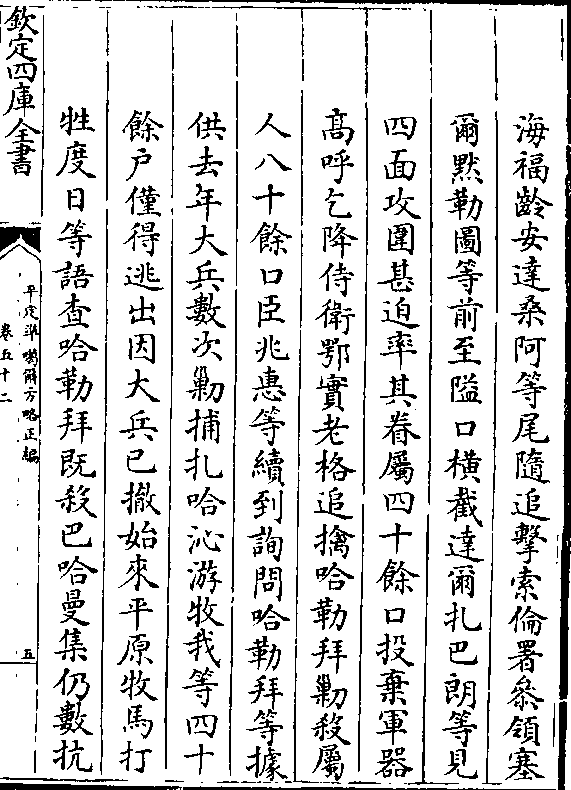 海福齡安達桑阿等尾隨追擊索倫署叅領塞
爾黙勒圖等前至隘口橫截達爾扎巴朗等見
四面攻圍甚迫率其眷屬四十餘口投棄軍器
髙呼乞降侍衛鄂實老格追擒哈勒拜勦殺屬
人八十餘口臣兆惠等續到詢問哈勒拜等據
供去年大兵數次勦捕扎哈沁游牧我等四十
餘户僅得逃出因大兵已撤始來平原牧馬打
牲度日等語查哈勒拜既殺巴哈曼集仍數抗
欽定四庫全書
平定準噶爾方略正編
卷五十二
五